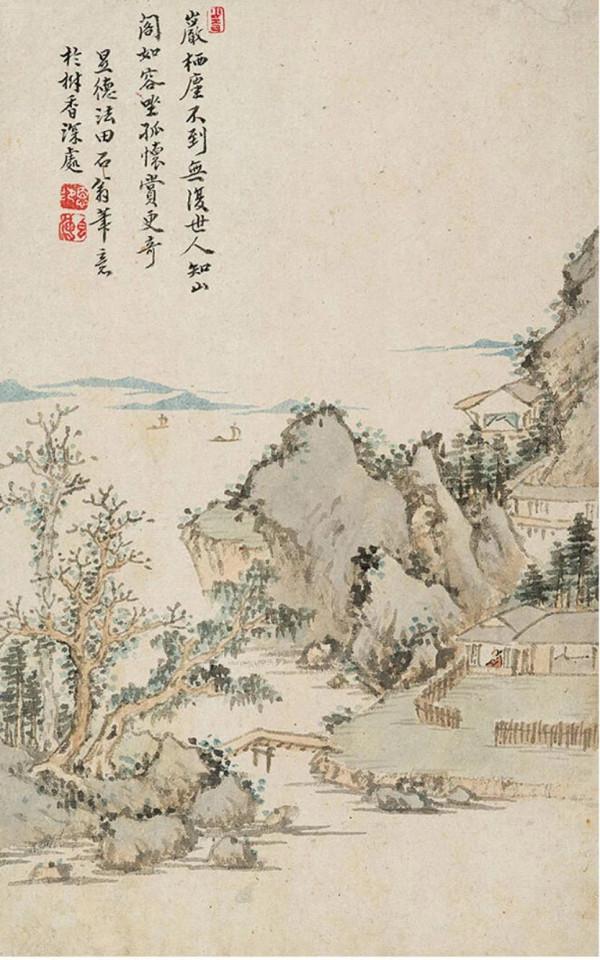 巖栖塵不到無復世人知山
閣如容坐孤懷賞更奇
昱德法田石翁筆意
於香深處